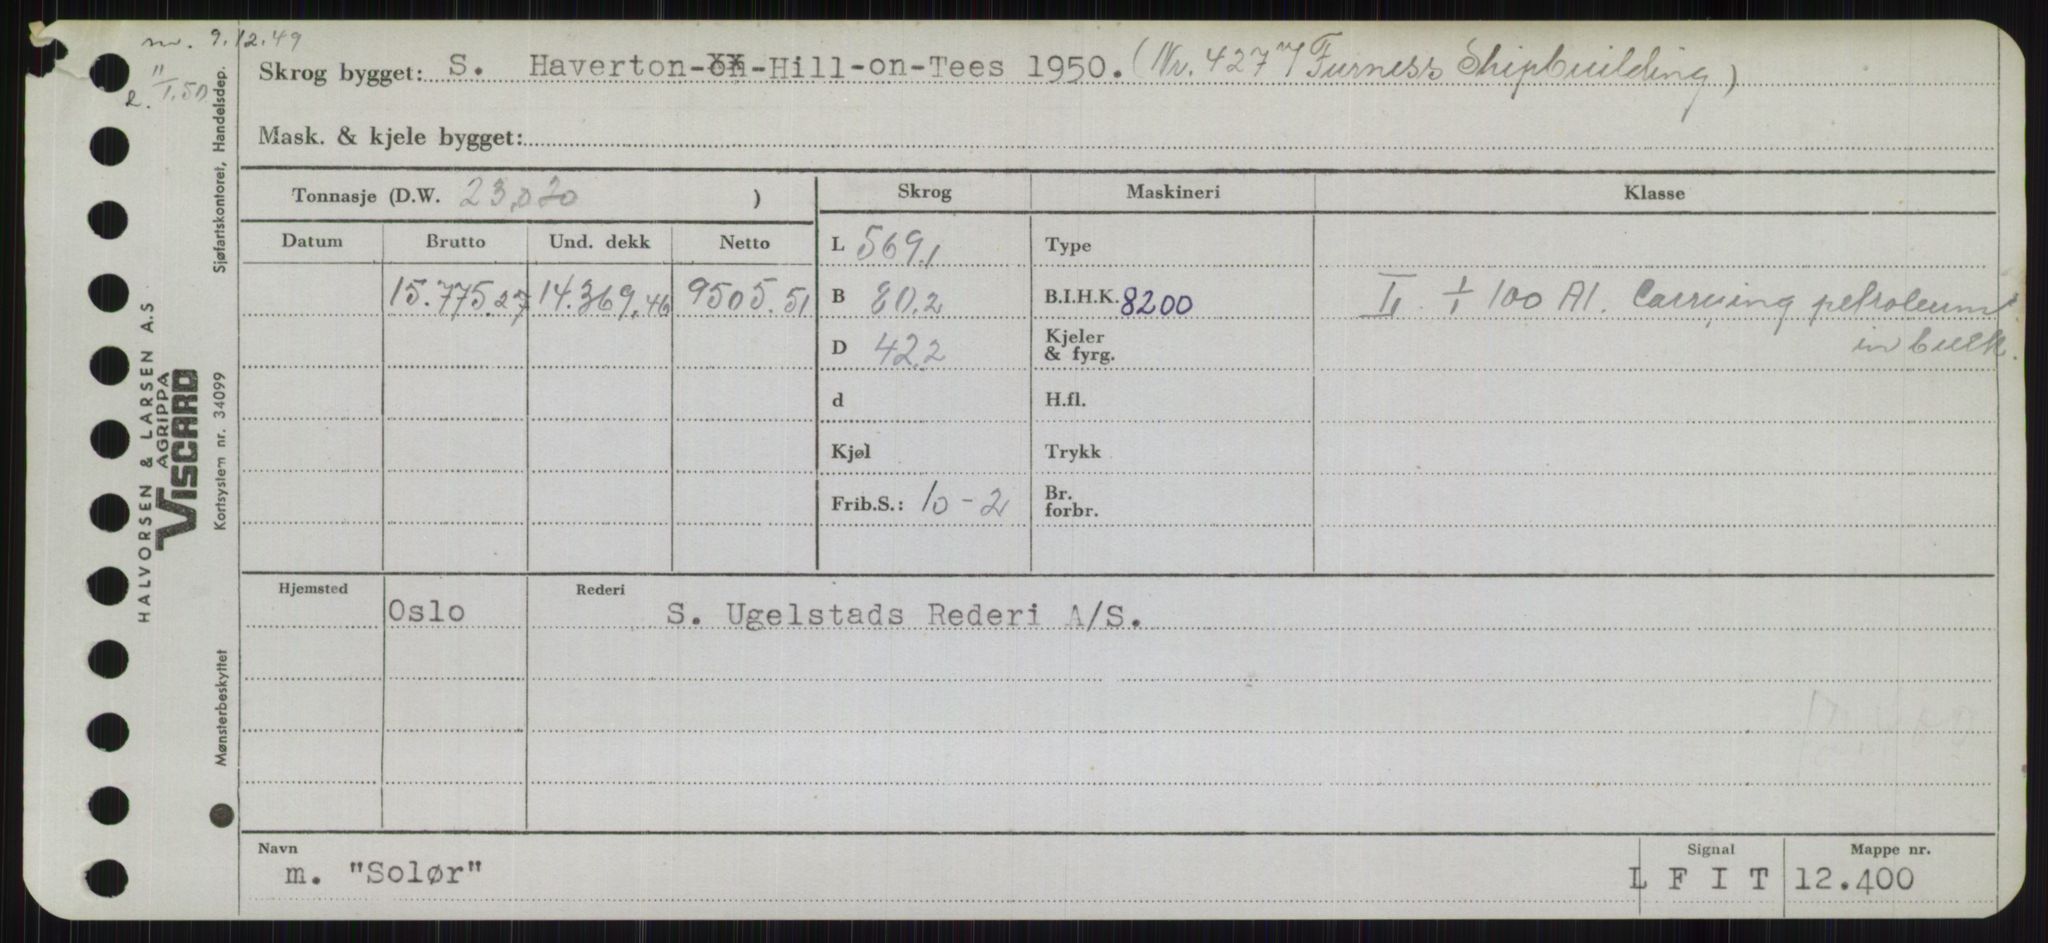 m. 9.12.49
11/1.50
Skrog bygget: S. Haverton-on-Hill-on-Tees 1950. (Nr. 427 Furness Shipbuilding)
Mask. & kjele bygget:
Tonnasje (D.W. 23,030 )
Skrog Maskineri Klasse
Datum Brutto Und. dekk Netto
L 569,1 Type
15.775.27 14.369.46 9505.51
B 80.2 B.I.H.K. 8200
1/1 100 A1. Carrying petroleum
in bulk.
D 42.2 Kjeler
& fyrg.
d H.fl.
Kjøl Trykk
Frib.S.: 10-2 Br.
forbr.
Hjemsted Oslo Rederi S. Ugelstads Rederi A/S.
Navn
m. "Solør"
Signal
L F I T
Mappe nr.
12.400
HALVORSEN & LARSEN A.S
AGRIPPA
VISCARD
Sjøfartskontoret, Handelsdep.
Kortsystem nr. 34099
Mønsterbeskyttet